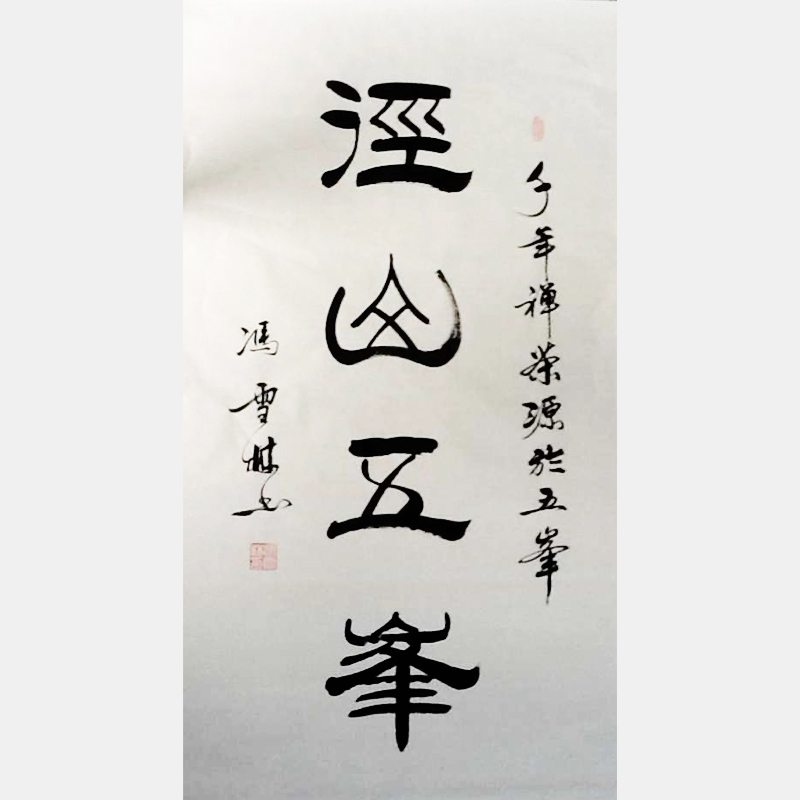 千年禪茶源於五峯
徑山五峯
馮雪书